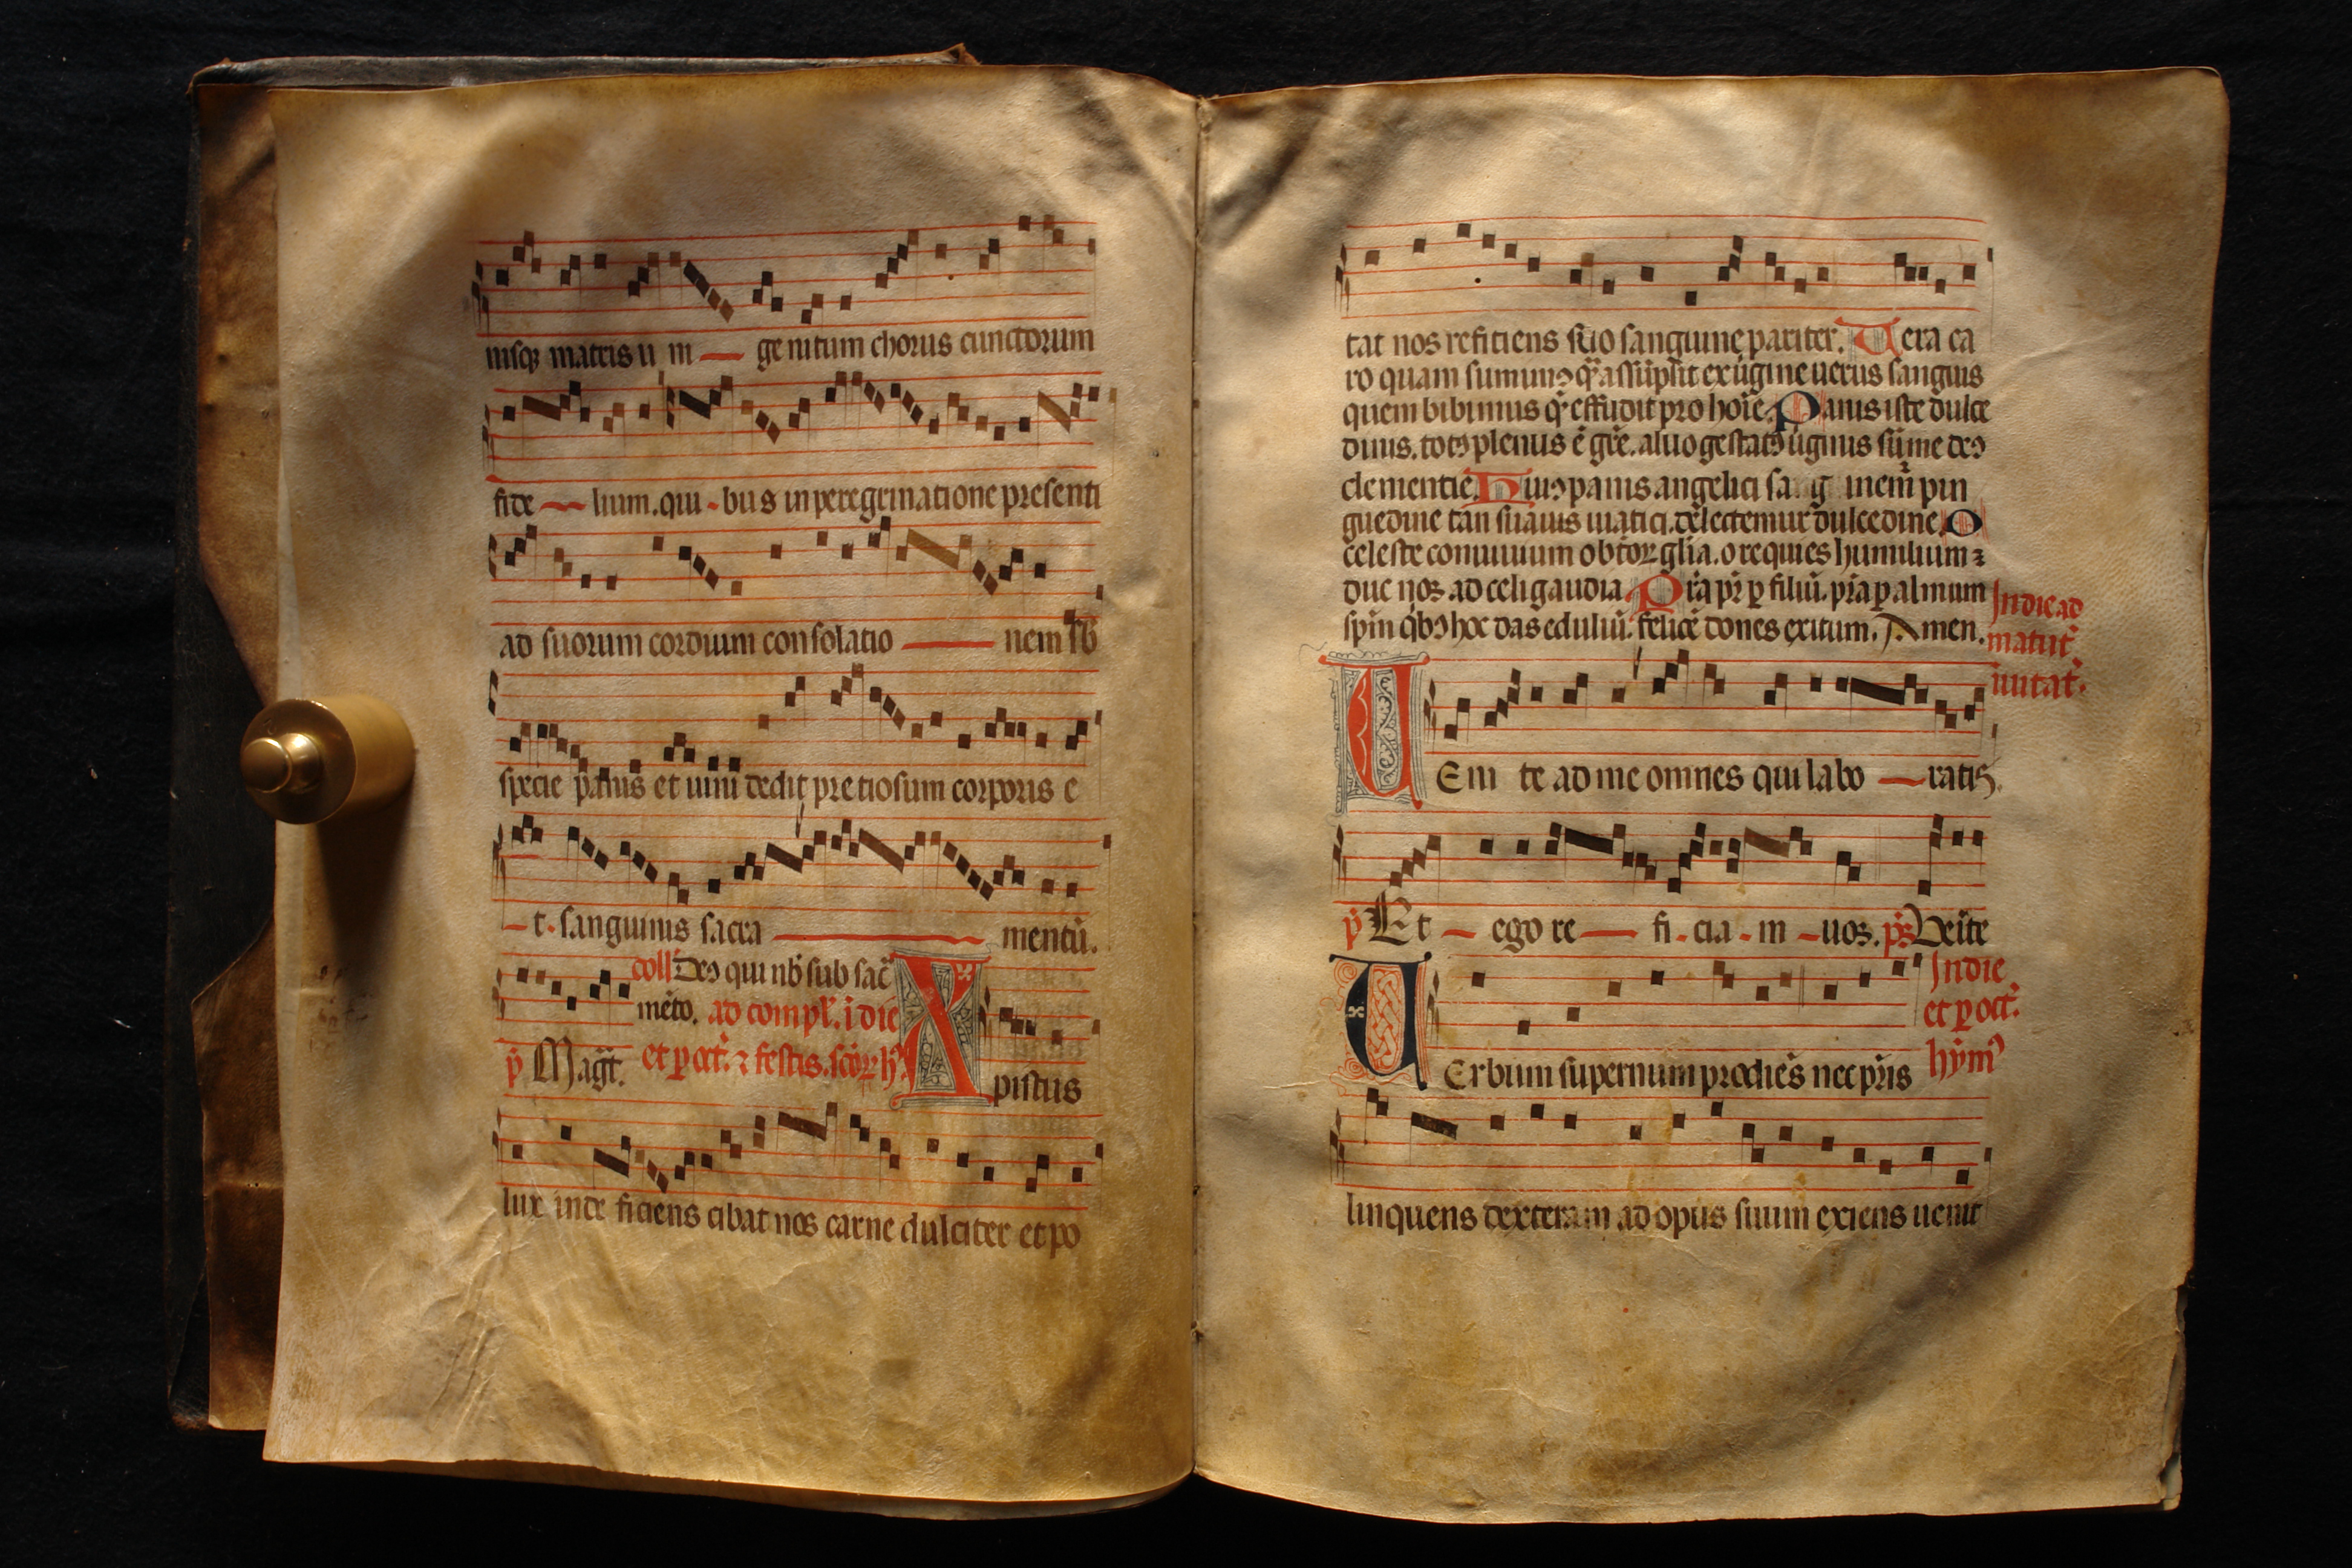 nisq matris u ni ge nitum chorus cunctorum
fide lium. qui bus in peregrinatione presenti
ad suorum cordium consolatio nem sb
specie panis et uini dedit pretiosum corporis e
t. sanguinis sacra mentū.
coll Deꝰ qui nb̄ sub sac̄
mēto. ad compl. i die
p̄ Magt̄. et p oct. ⁊ festis. h
Xpistus
lux inde ficiens cibat nos carne dulciter et po
tat nos reficiens suo sanguine pariter. Uera ca
ro quam sumimꝰ assūpsit ex ugine uerus sanguis
quem bibimus effudit pro hoīe. Panis iste dulce
diuis. totꝰ plenus ē grē. aluo gestatꝰ uginis sūme deꝰ
clementie. Huiꝰ panis angelici sa g inem pin
guedine tan suauis uiatici. delectemur dulcedine. O
celeste conuiuium o btoꝝ glia. o requies humilium ⁊
duc nos ad celi gaudia. Pr̄a pr̄ p filiū. pr̄a p almum
sp̄m qbꝰ hoc das eduliū. felicē dones exitum. Amen. In die ad
matut̄
iuitat.
UEni te ad me omnes qui labo ratis.
p̄ Et ego re fi cia m uos. ps. Ueīte
In die
et p oct.
hym̄
UErbum supernum prodiēs nec pr̄is
linquens dexteram ad opus suum exiens uenit